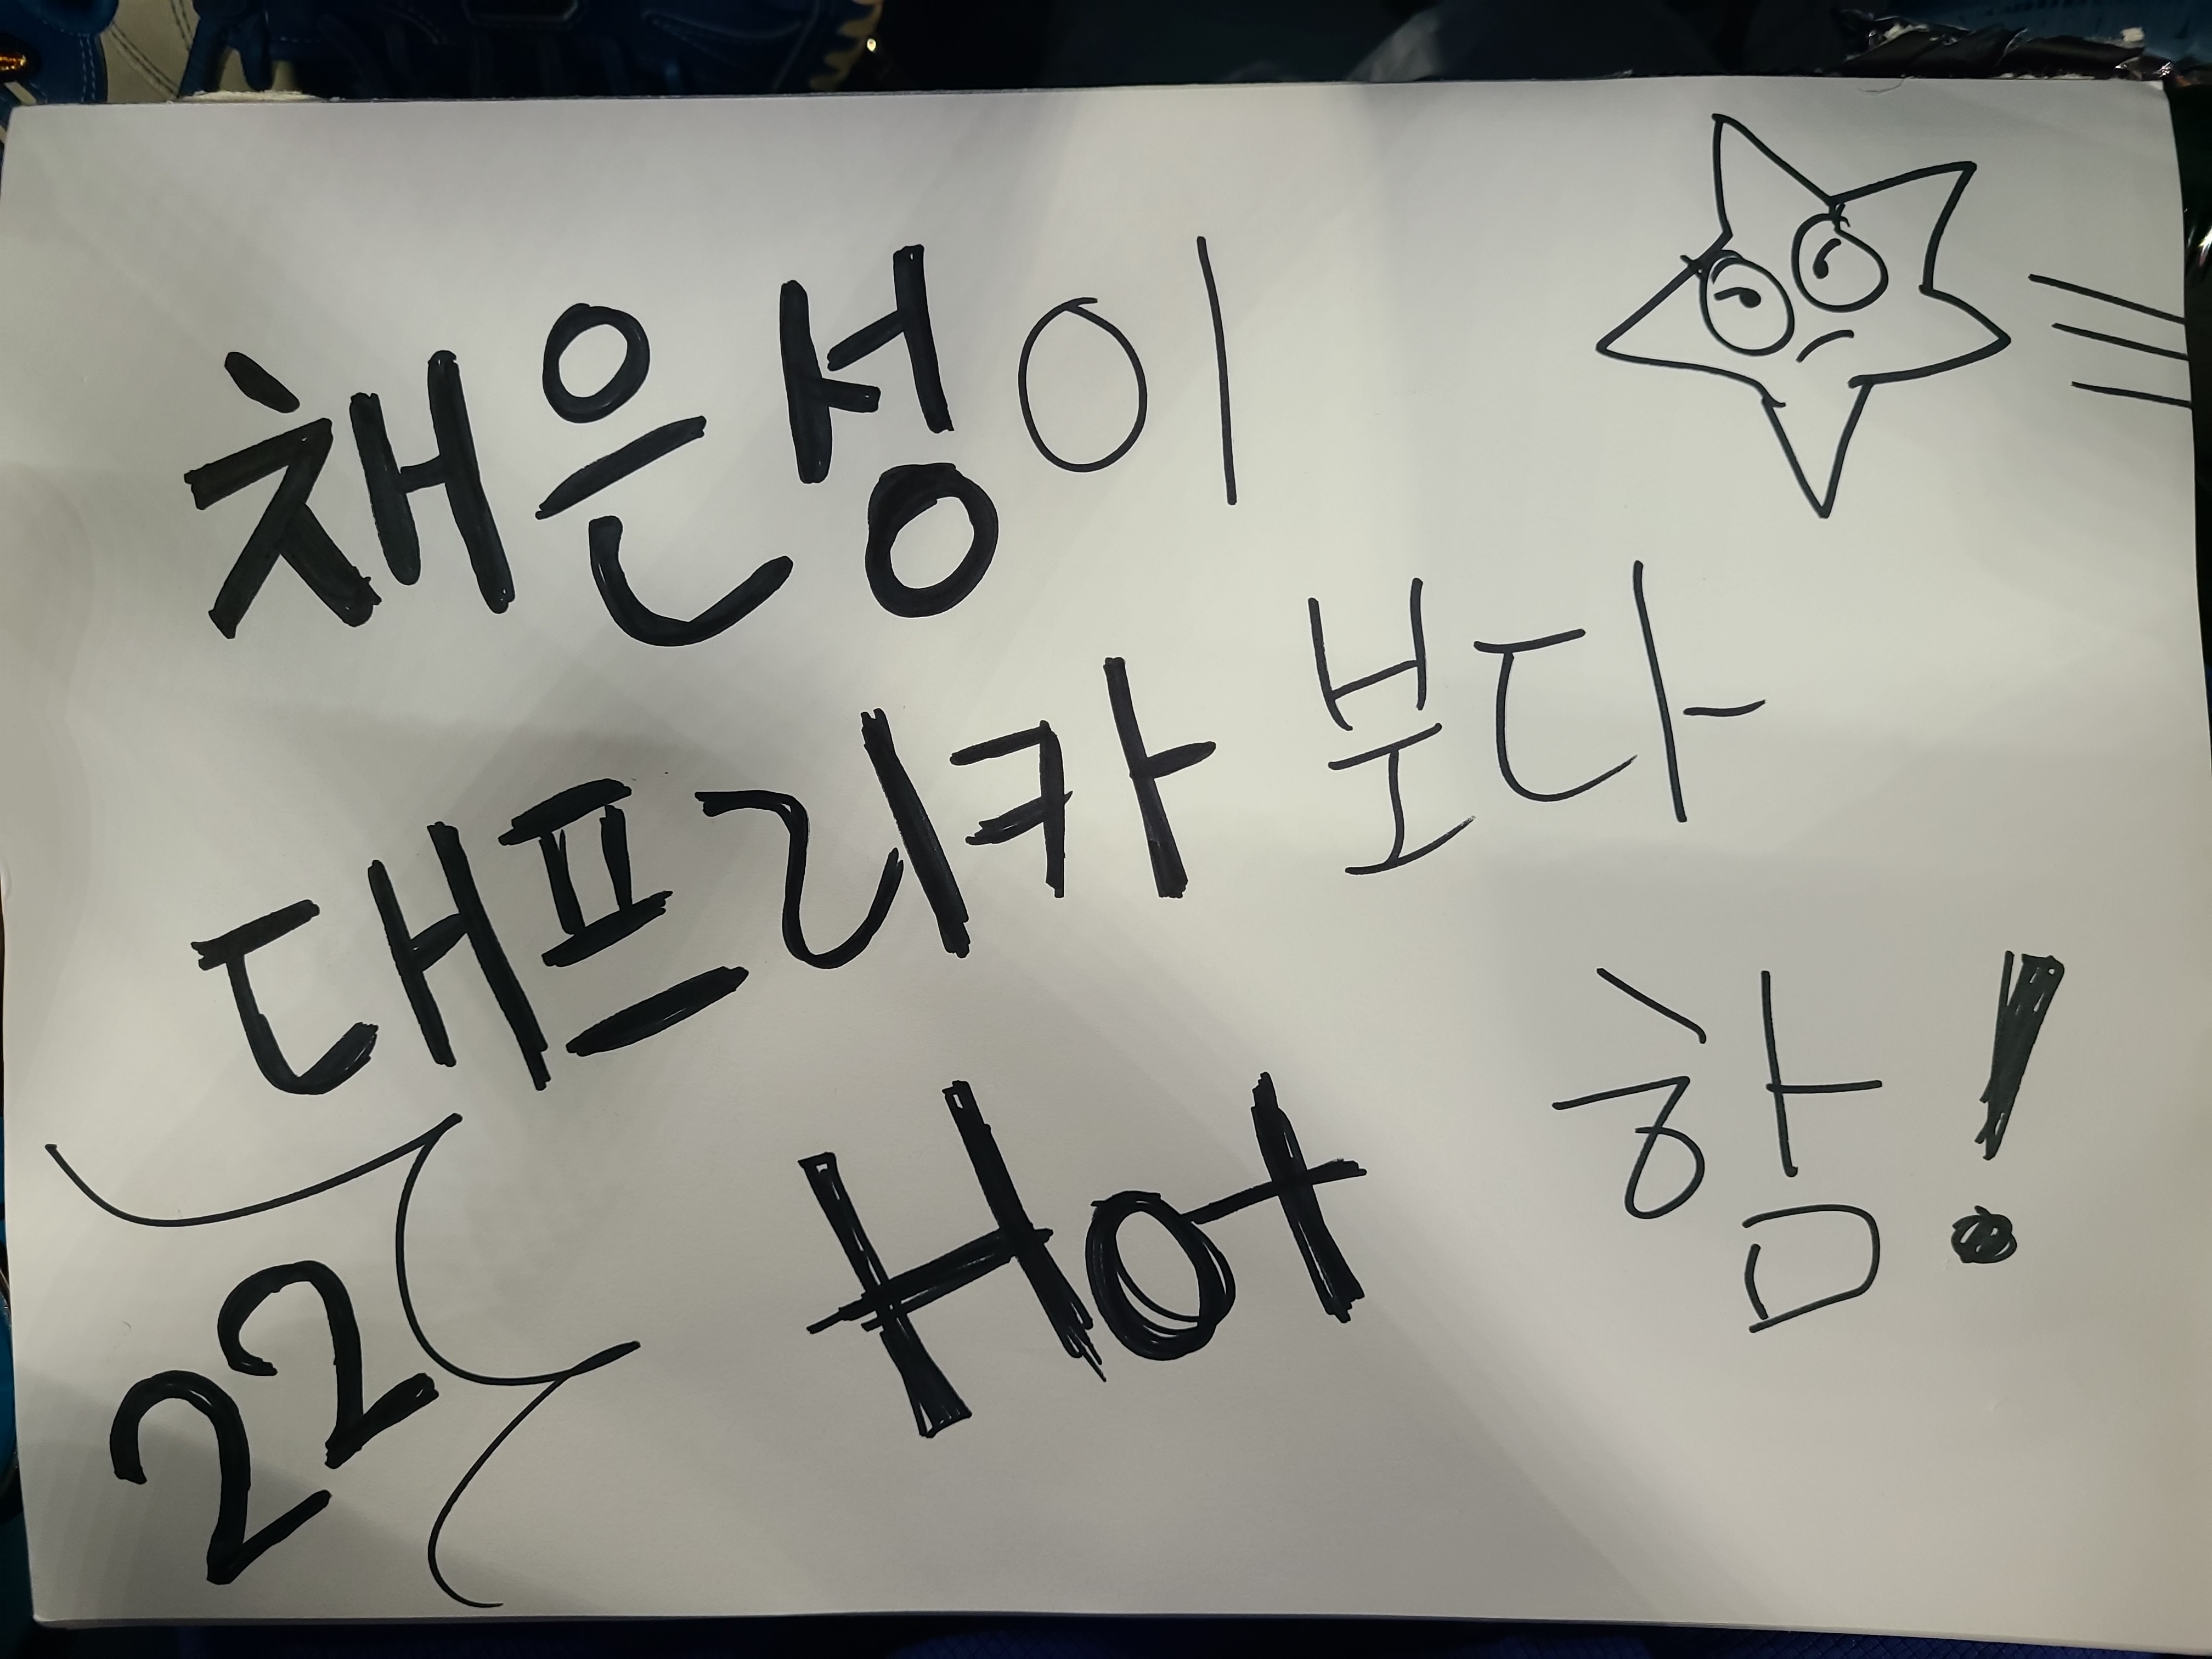 채은성이
대프리카 보다
Hot 함!
22